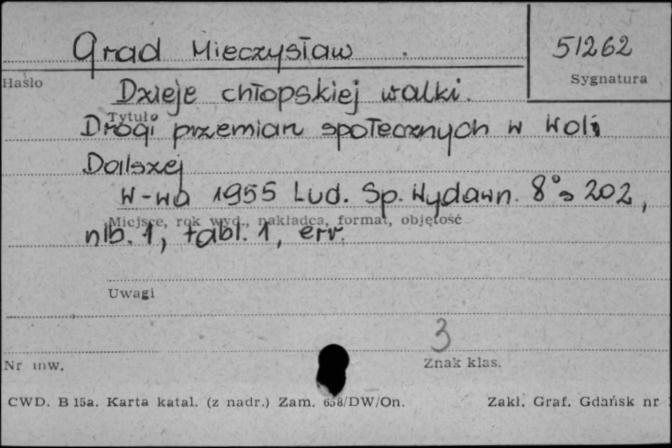 Grad Mieczysław
51262
Hasło
Sygnatura
Dzieje chłopskiej walki.
Tytuł
Drogi przemian społecznych w Woli
Dalszej
W-wa 1955 Lud. Sp. Wydawn. 8° s 202,
Miejsce, rok wyd., nakładca, format, objętość
nlb. 1, tabl. 1, err.
Uwagi
3
Nr inw.
Znak klas.
CWD. B 15a. Karta katal. (z nadr.) Zam. 658/DW/On.
Zakł. Graf. Gdańsk nr